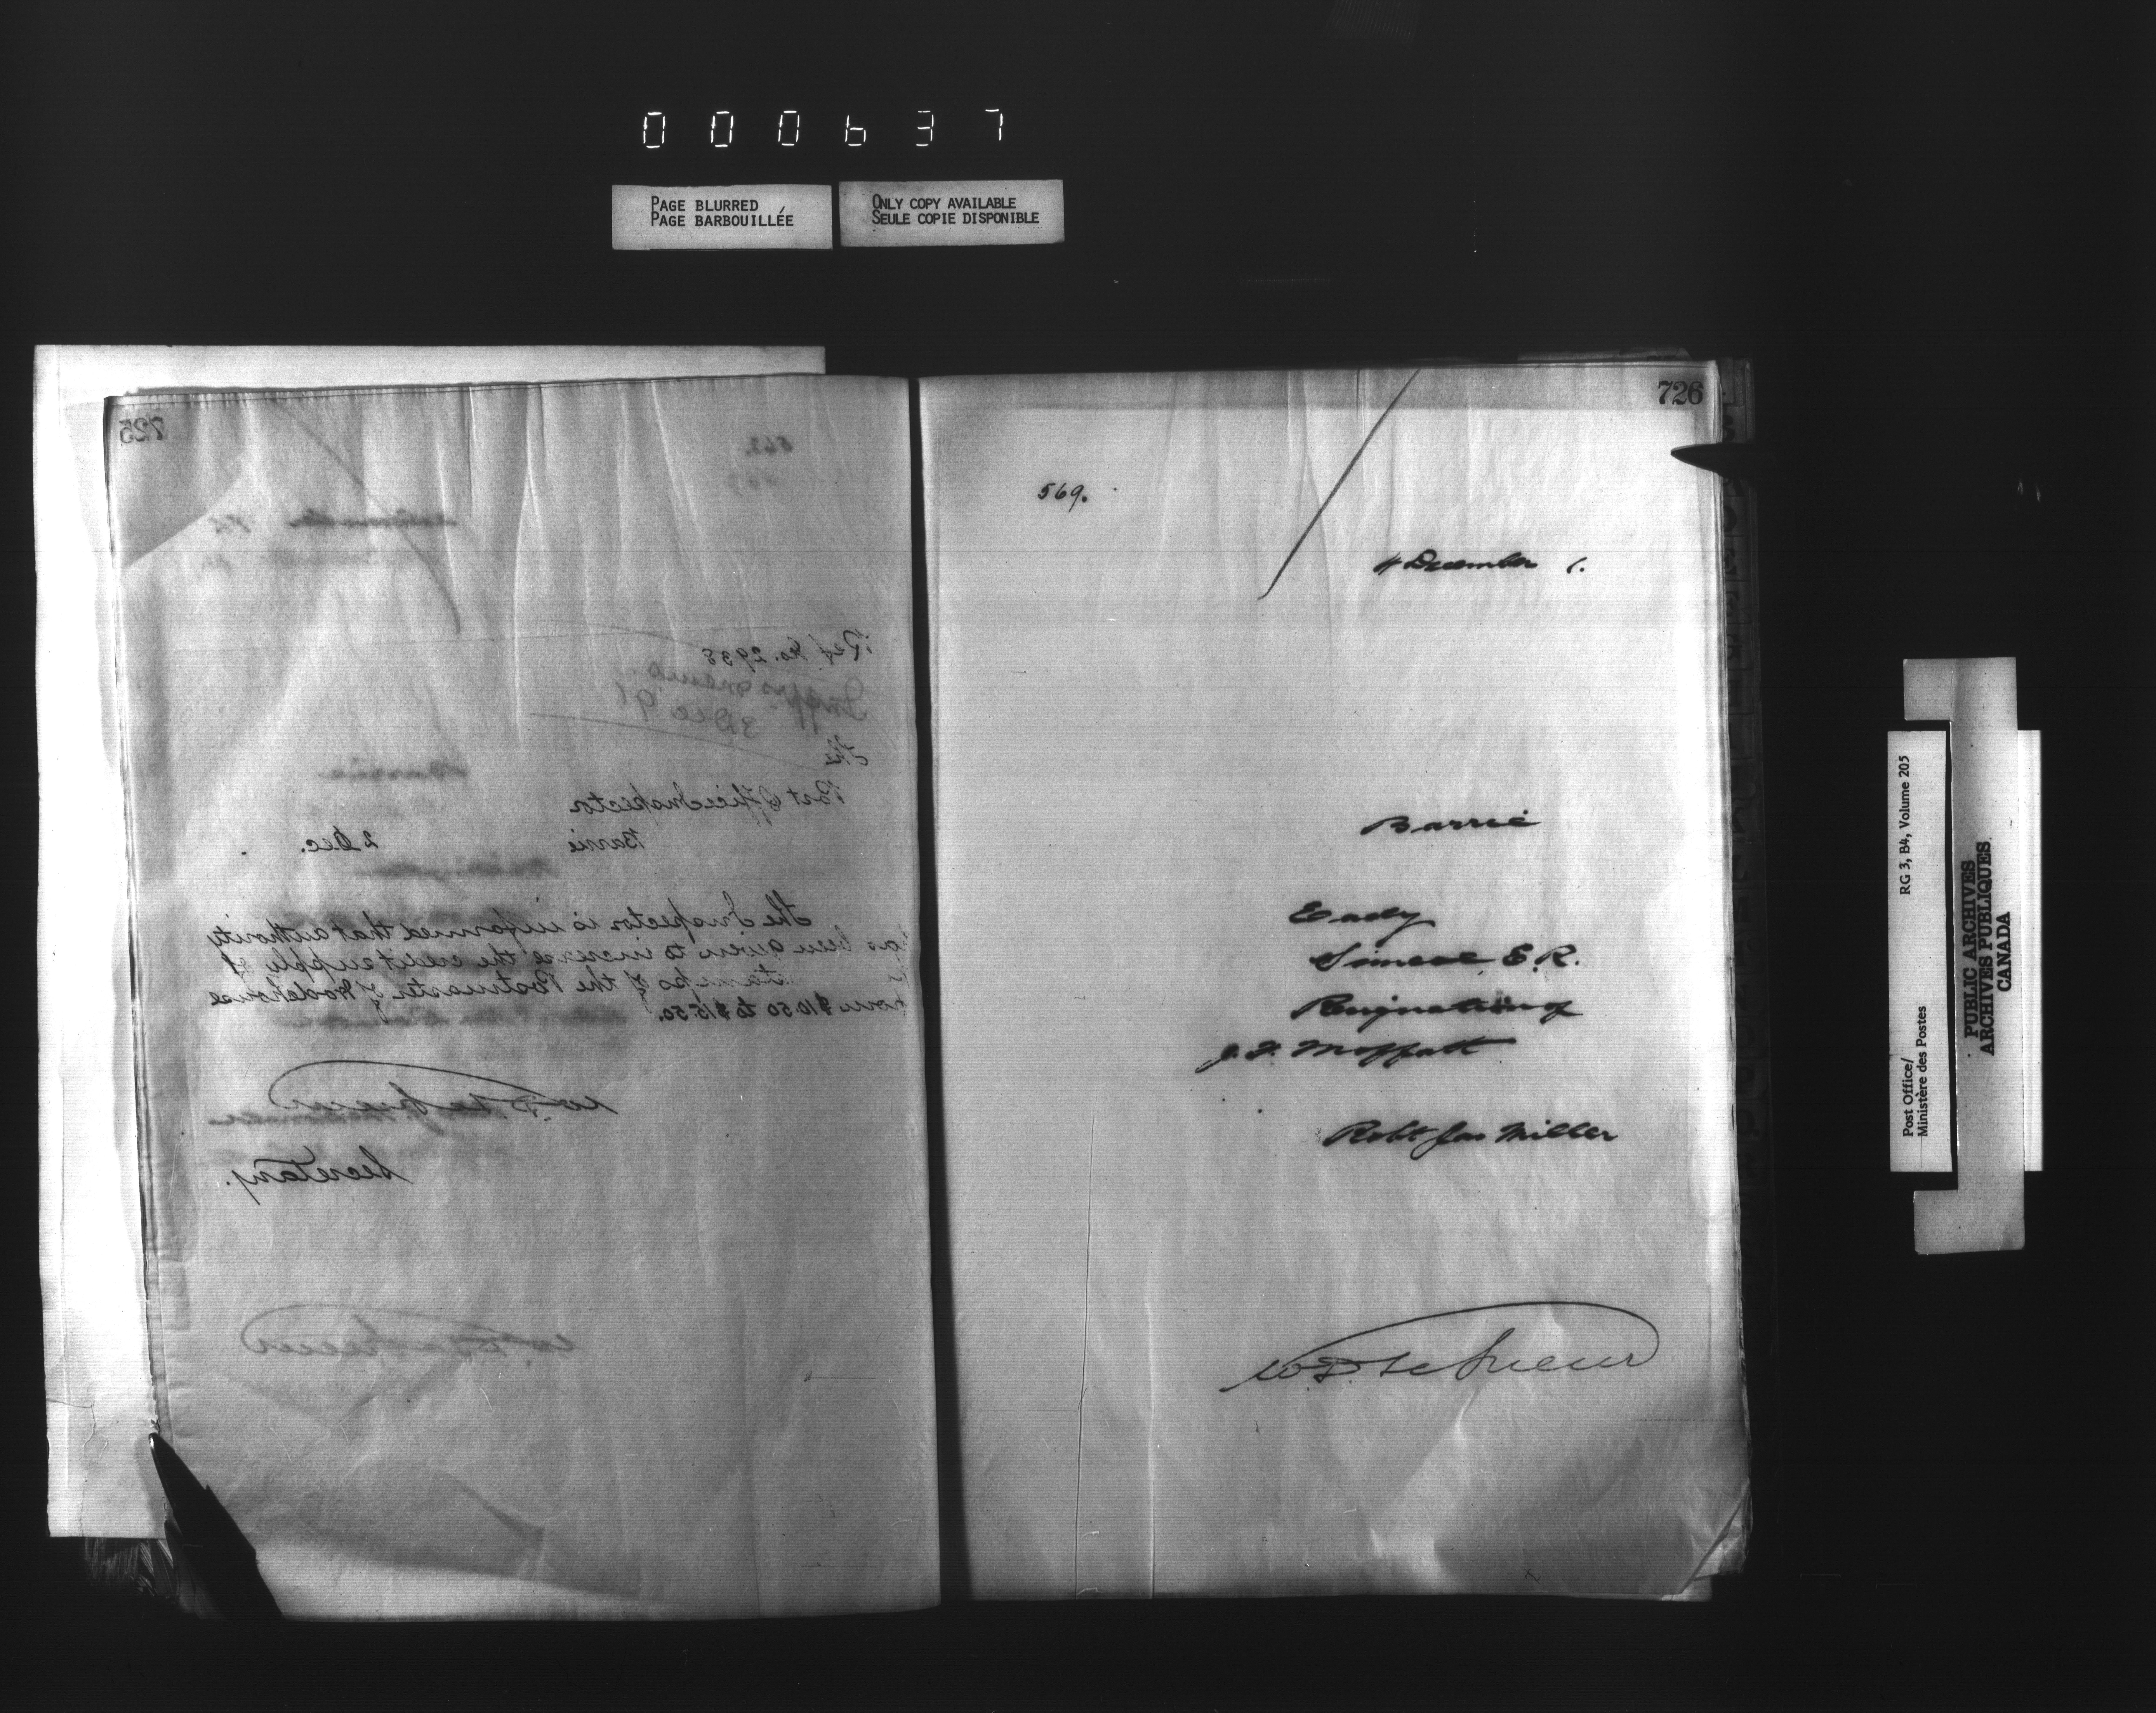 000637
PAGE BLURRED
PAGE BARBOUILLÉE
ONLY COPY AVAILABLE
SEULE COPIE DISPONIBLE
725
Ref. No. 2938
3 Dec 91
The
Post Office Inspector
Barrie 2 Dec.
The Inspector is informed that authority
been given to increase the credit supply of
stamps of the Postmaster of Wodehouse
from $10.50 to $15.50.
W.D. LeSueur
Secretary.
726
569.
4 December 1.
Barrie
Eady
Simcoe E.R.
Resignation of
Moffatt
Robt Jas Miller
W.D. LeSueur
Post Office/
Ministère des Postes
RG 3, B4, Volume 205
PUBLIC ARCHIVES
ARCHIVES PUBLIQUES
CANADA